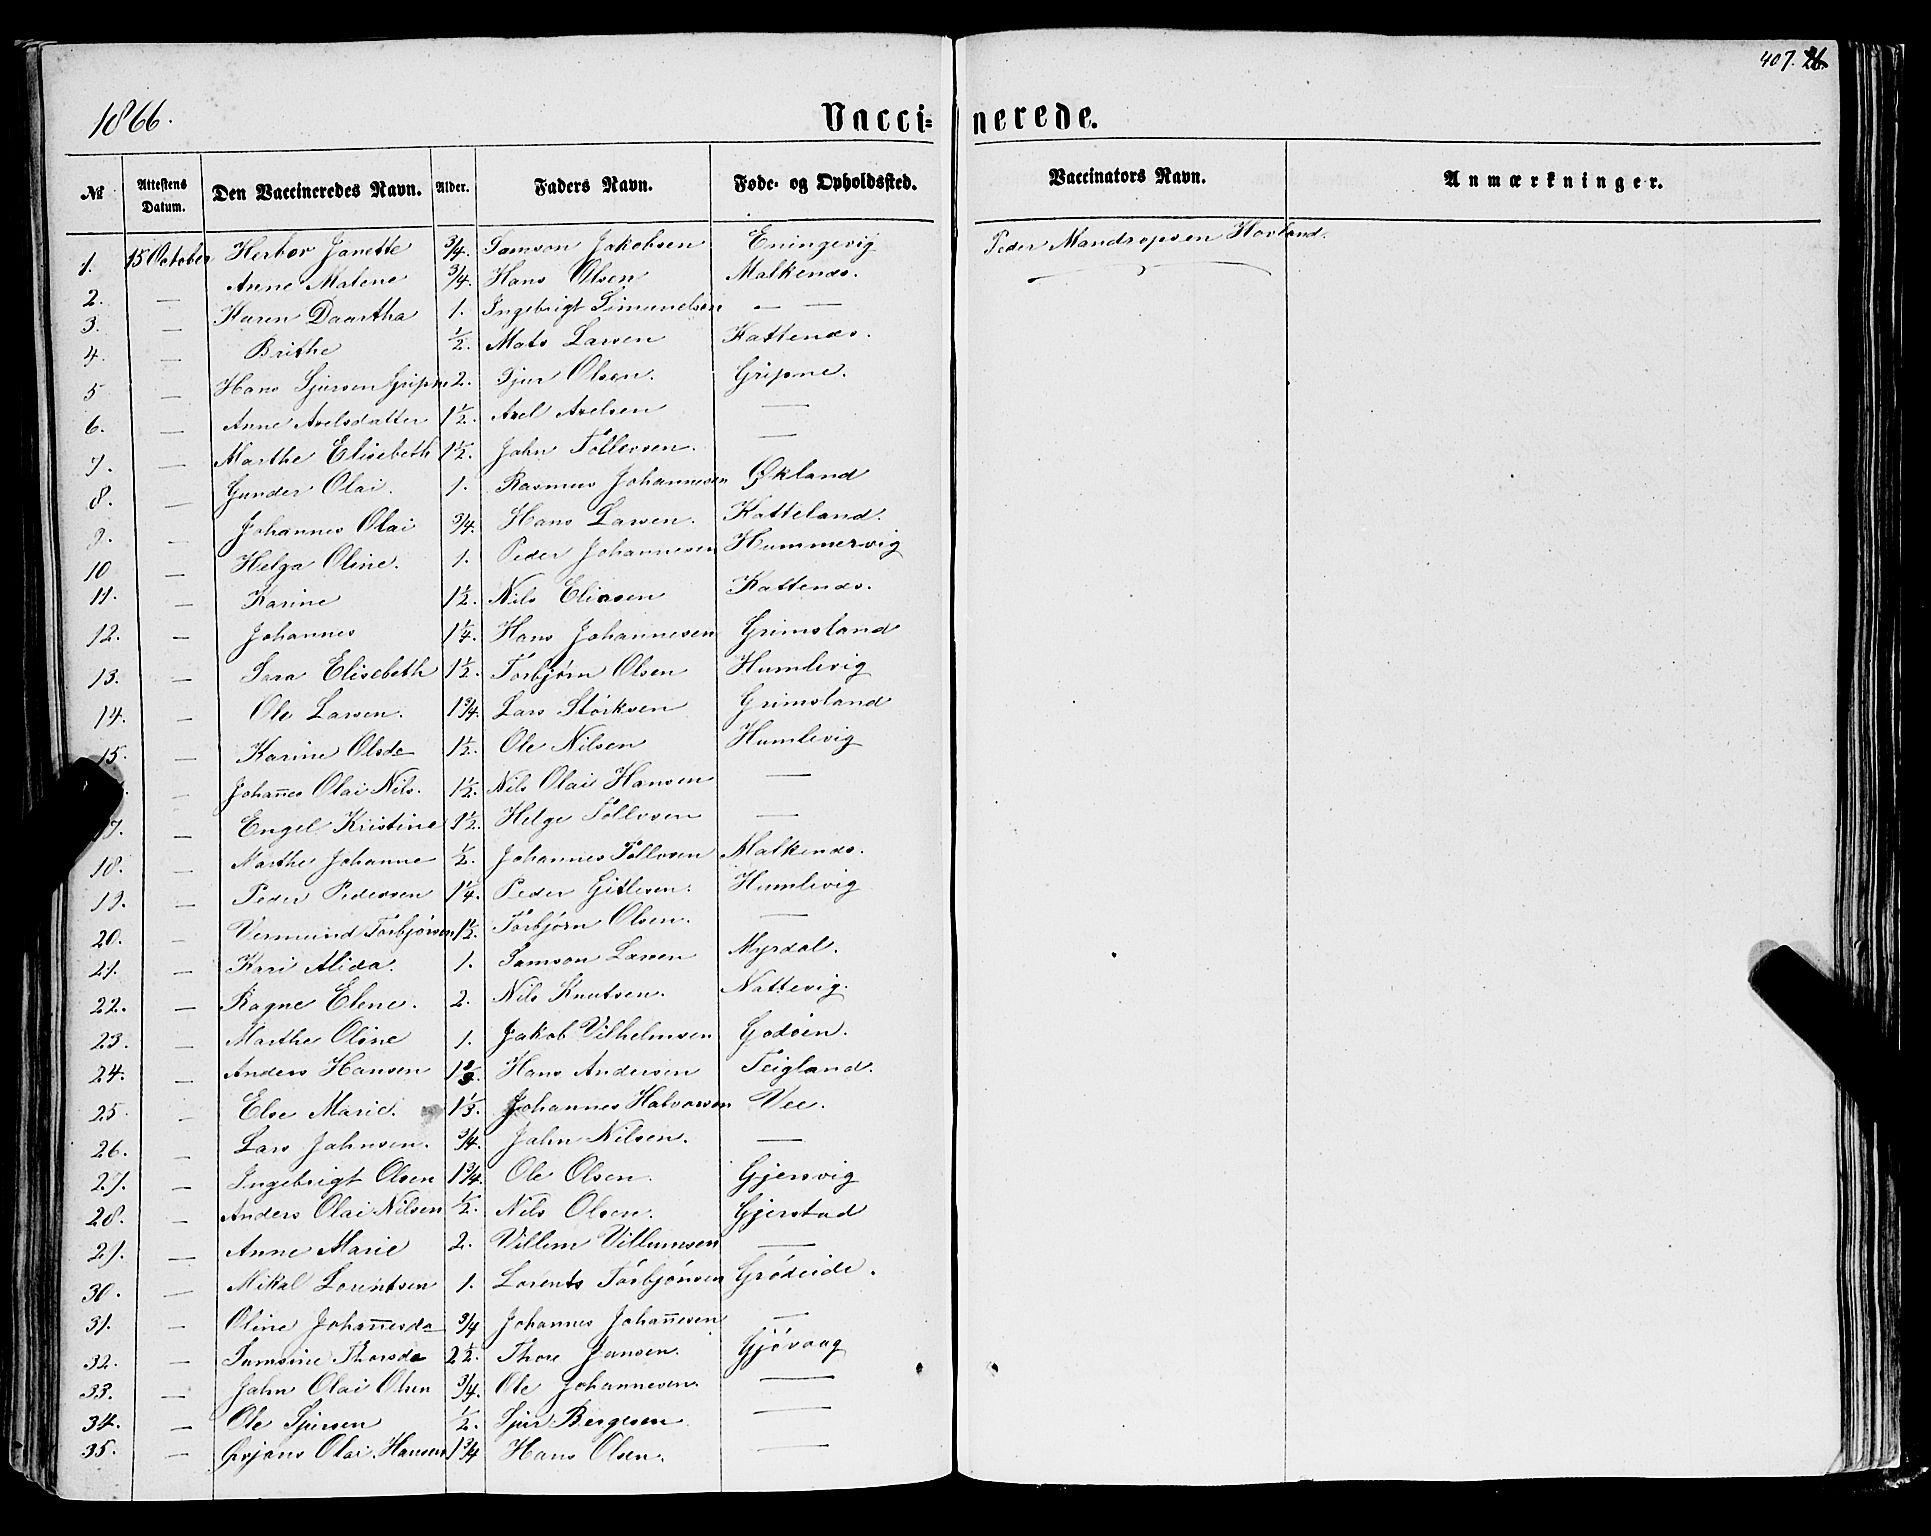 407. 26.
1866. Vaccinerede.
№ Attestens Datum. Den Vaccineredes Navn. Alder. Faders Navn. Føde- og Opholdssted. Vaccinators Navn. Anmærkninger.
1. 15 October Herbor Janette 3/4. Samson Jakobsen Eningevig Peder Mandropsen Hovland.
2. — Anne Malene 3/4. Hans Olsen Malkenæs.
3. — Karen Daartha 1. Ingebrigt Simunelsen — —
4. — Brithe 1/2. Mats Larsen Kattenæs.
5 — Hans Sjursen Gripne 2. Sjur Olsen. Gripne.
6. — Anne Axelsdatter 1 1/2. Axel Axelsen —
7. — Marthe Elisebeth 1 1/2. John Tollevsen. —
8. — Gunder Olai. 1. Rasmus Johannesen Økland
9. — Johannes Olai 3/4. Hans Larsen. Katteland.
10 — Helga Oline. 1. Peder Johannesen Hummervig
11. — Karine 1 1/2. Nils Eliasen Kattenæs.
12. — Johannes 1 1/4. Hans Johannesen Grimsland
13. — Sara Elisebeth 1 1/2. Torbjørn Olsen Humlevig
14. — Ole Larsen. 1 3/4. Lars Størksen Grimsland
15. — Karine Olsda 1 1/2. Ole Nilsen Humlevig
— Johañes Olai Nils. 1 1/2. Nils Olai Hansen —
17. — Engel Kristine 1 1/2. Helge Tollevsen —
18. — Marthe Johanne 1/2. Johannes Tollevsen Malkenæs.
19. — Peder Pedersen 1 1/4. Peder Gitlesen. Humlevig
20. — Vermund Torbjørsen 1 1/2. Torbjørn Olsen. —
21. — Kari Alida. 1. Samson Larsen Myrdal.
22. — Ragne Elene. 2. Nils Knutsen. Nattevig.
23. — Marthe Oline 1. Jakob Vilhelmsen Godøen.
24. — Anders Hansen 1 2/3. Hans Andersen Teigland.
25 — Else Marie. 1 1/3. Johannes Halvorsen Vee.
26. — Lars Jahnsen. 3/4. Jahn Nilsen. —
27. — Ingebrigt Olsen 1 3/4. Ole Olsen. Gjersvig
28. — Anders Olai Nilsen 1/2. Nils Olsen. Gjerstad
29. — Anne Marie 2. Villem Villumsen —
30. — Mikal Lorentsen 1. Lorents Torbjönsen Grödeide.
31. — Oline Johañesda 3/4 Johannes Johañesen —
32. — Samsine Thorsda 2 1/2. Thore Jansen. Gjövaag
33. — Jahn Olai Olsen 3/4. Ole Johannesen. —
34. — Ole Sjursen 1/2. Sjur Bergesen —
35. — Ørjans Olai Hansen 1 3/4 Hans Olsen. —